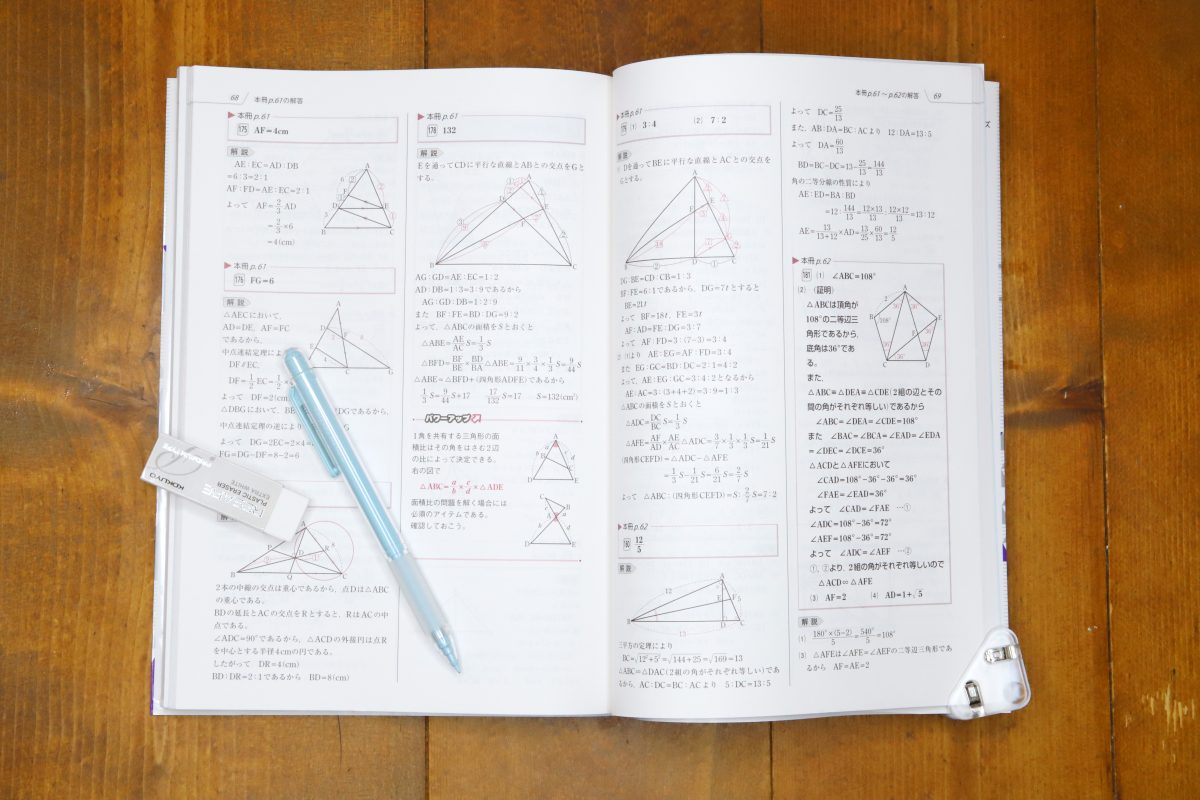 68 本冊p.61の解答
▶本冊p.61
175 AF=4cm
解説
AE:EC=AD:DB
=6:3=2:1
AF:FD=AE:EC=2:1
よって AF=2/3 AD
=2/3×6
=4(cm)
▶本冊p.61
176 FG=6
解説
△AECにおいて,
AD=DE, AF=FC
であるから,
中点連結定理により
DF∥EC,
DF=1/2 EC=1/2×
よって DF=2(cm)
△DBGにおいて, BE DGであるから,
中点連結定理の逆により
よって DG=2EC=2×4=
FG=DG-DF=8-2=6
2本の中線の交点は重心であるから, 点Dは△ABC
の重心である。
BDの延長とACの交点をRとすると, RはACの中
点である。
∠ADC=90°であるから, △ACDの外接円は点R
を中心とする半径4cmの円である。
したがって DR=4(cm)
BD:DR=2:1であるから BD=8(cm)
▶本冊p.61
178 132
解説
Eを通ってCDに平行な直線とABとの交点をGと
する。
AG:GD=AE:EC=1:2
AD:DB=1:3=3:9であるから
AG:GD:DB=1:2:9
また BF:FE=BD:DG=9:2
よって, △ABCの面積をSとおくと
△ABE=AE/AC S=1/3 S
△BFD=BF/BE×BD/BA△ABE=9/11×3/4×1/3 S=9/44 S
△ABE=△BFD+(四角形ADFE)であるから
1/3 S=9/44 S+17 17/132 S=17 S=132(cm²)
パワーアップ
1角を共有する三角形の面
積比はその角をはさむ2辺
の比によって決定できる。
右の図で
△ABC=a/b×c/d×△ADE
面積比の問題を解く場合には
必須のアイテムである。
確認しておこう。
本冊p.61~p.62の解答 69
▶本冊p.61
179 (1) 3:4 (2) 7:2
解説
Dを通ってBEに平行な直線とACとの交点を
Gとする。
DG:BE=CD:CB=1:3
BF:FE=6:1であるから, DG=7ℓとすると
BE=21ℓ
よって BF=18ℓ, FE=3ℓ
AF:AD=FE:DG=3:7
よって AF:FD=3:(7-3)=3:4
より AE:EG=AF:FD=3:4
また EG:GC=BD:DC=2:1=4:2
よって, AE:EG:GC=3:4:2となるから
AE:AC=3:(3+4+2)=3:9=1:3
△ABCの面積をSとおくと
△ADC=DC/BC S=1/3 S
△AFE=AF/AD×AE/AC△ADC=3/7×1/3×1/3 S=1/21 S
(四角形CEFD)=△ADC-△AFE
=1/3 S-1/21 S=6/21 S=2/7 S
よって △ABC:(四角形CEFD)=S:2/7 S=7:2
▶本冊p.62
180 12/5
解説
三平方の定理により
BC=√12²+5²=√144+25=√169=13
△ABC∽△DAC(2組の角がそれぞれ等しい)であ
るから, AC:DC=BC:ACより 5:DC=13:5
よって DC=25/13
また, AB:DA=BC:ACより 12:DA=13:5
よって DA=60/13
BD=BC-DC=13-25/13=144/13
角の二等分線の性質により
AE:ED=BA:BD
=12:144/13=12×13/13:12×12/13=13:12
AE=13/13+12×AD=13/25×60/13=12/5
▶本冊p.62
181 (1) ∠ABC=108°
(2) (証明)
△ABCは頂角が
108°の二等辺三
角形であるから,
底角は36°であ
る。
また,
△ABC≡△DEA≡△CDE(2組の辺とその
間の角がそれぞれ等しい)であるから
∠ABC=∠DEA=∠CDE=108°
また ∠BAC=∠BCA=∠EAD=∠EDA
=∠DEC=∠DCE=36°
△ACDと△AFEにおいて
∠CAD=108°-36°-36°=36°
∠FAE=∠EAD=36°
よって ∠CAD=∠FAE …①
∠ADC=108°-36°=72°
∠AEF=108°-36°=72°
よって ∠ADC=∠AEF …②
①, ②より, 2組の角がそれぞれ等しいので
△ACD∽△AFE
(3) AF=2 (4) AD=1+√5
解説
(1) 180°×(5-2)/5=540°/5=108°
(3) △AFEは∠AFE=∠AEFの二等辺三角形であ
るから AF=AE=2
PLASTIC ERASER
EXTRA WHITE